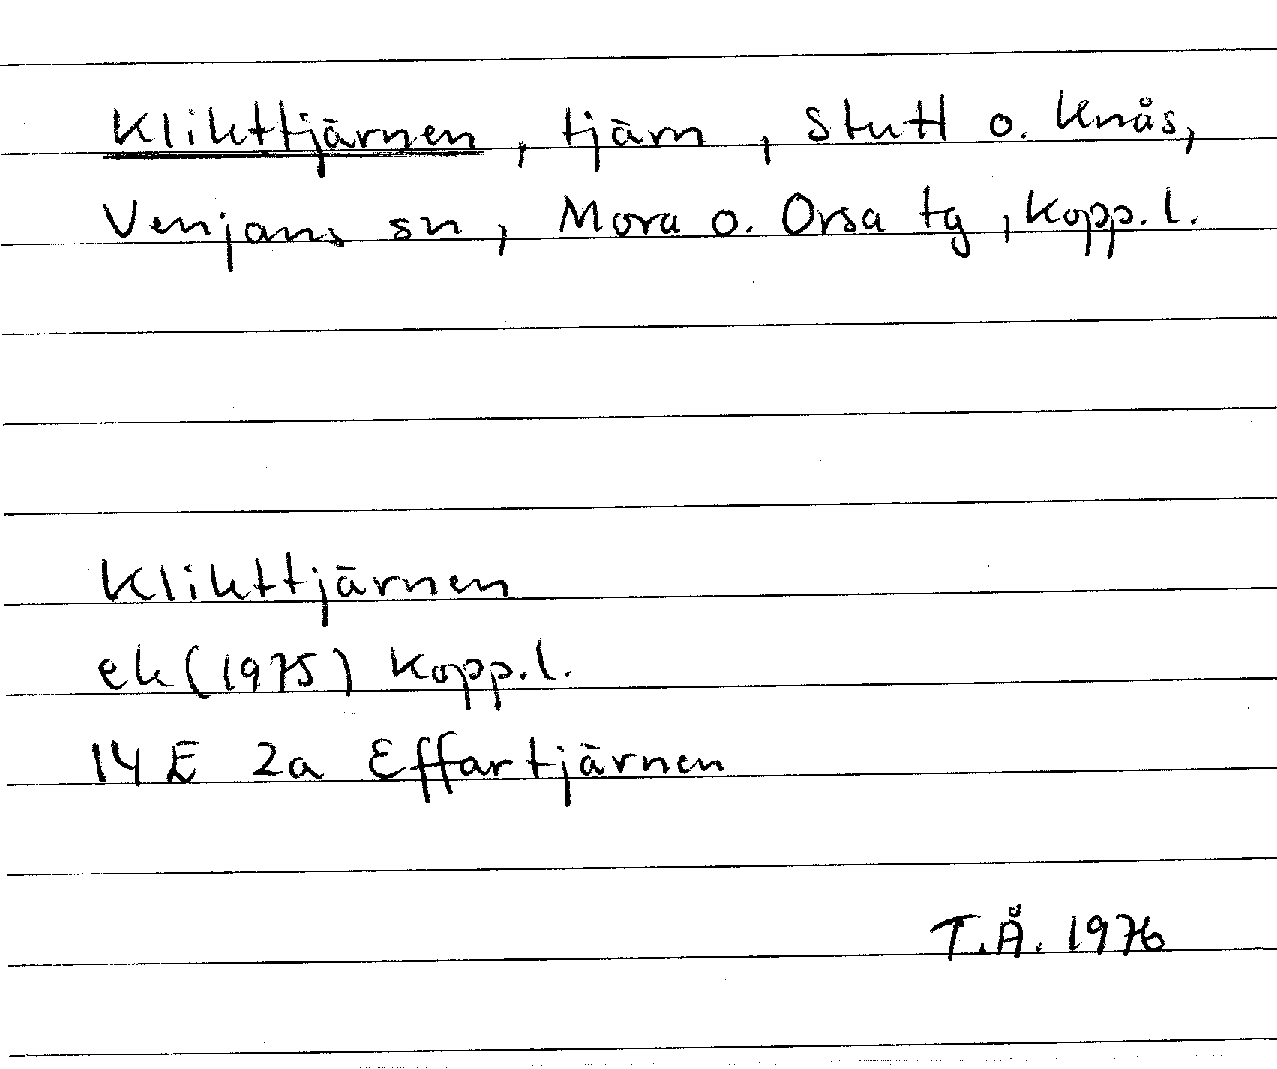 Klikttjärnen, tjärn, Stutt o. Knås,
Venjans sn, Mora o. Orsa tg, Kopp. l.
Klikttjärnen
ek (1975) Kopp. l.
14 E 2a Effartjärnen
T.Å. 1976